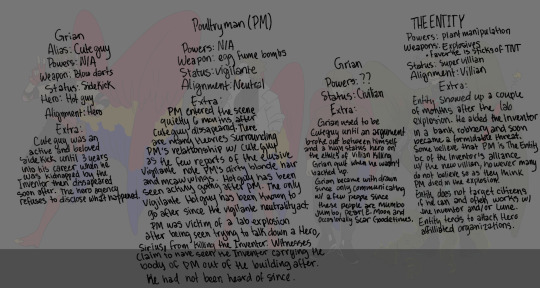 Grian
Alias: Cuteguy
Powers: N/A
Weapon: Blow darts
Status: Sidekick
Hero: Hot guy
Alignment: Hero
Extra:
Cuteguy was an
active and beloved
sidekick until 3 years
into his career when he
was kidnapped by the
Inventor then disappeared
soon after. The hero agency
refuses to disclose what happened.
Poultryman (PM)
Powers: N/A
Weapon: egg fume bombs
Status: Vigilante
Alignment: Neutral
Extra:
PM entered the scene
quietly 6 months after
Cuteguy disappeared. There
are many rumors surrounding
PM's relationship w/ Cuteguy
as the few reports of the elusive
Vigilante note PM's dirty blonde hair
and macaw wings. Hotguy has been
seen actively going after PM. The only
Vigilante Hotguy has been known to
go after since the vigilante neutrality act
PM was victim of a lab explosion
after being seen trying to talk down a Hero,
Sirius, from killing the Inventor. Witnesses
claim to have seen the Inventor carrying the
body of PM out of the building after.
He had not been heard of since.
Grian
Powers: ??
Status: Civilian
Extra:
Grian used to be
Cuteguy until an argument
broke out between him
and a hero agent, hero on
the ethics of villain killing.
Grian quit when he wasn't
backed up.
Grian became withdrawn
since only communicating
w/ a few people since
these people are Mumbo
Jumbo, Pearl E. Moon and
Occasionally Scar Goodtimes.
THE ENTITY
Powers: plant manipulation
Weapons: Explosives
-favorite is sticks of TNT
Status: Supervillian
Alignment: Villian
Extra:
Entity showed up a couple
of months after the lab
explosion. He aided the Inventor
in a bank robbery and soon
became a formidable threat.
Some believe that PM is The Entity
b/c of the Inventor's alliance
w/ the new villian, however many
do not believe so as they think
PM died in the explosion
Entity does not target citizens
if he can and often works w/
the Inventor and/or Lume.
Entity tends to attack Hero
affiliated organizations.